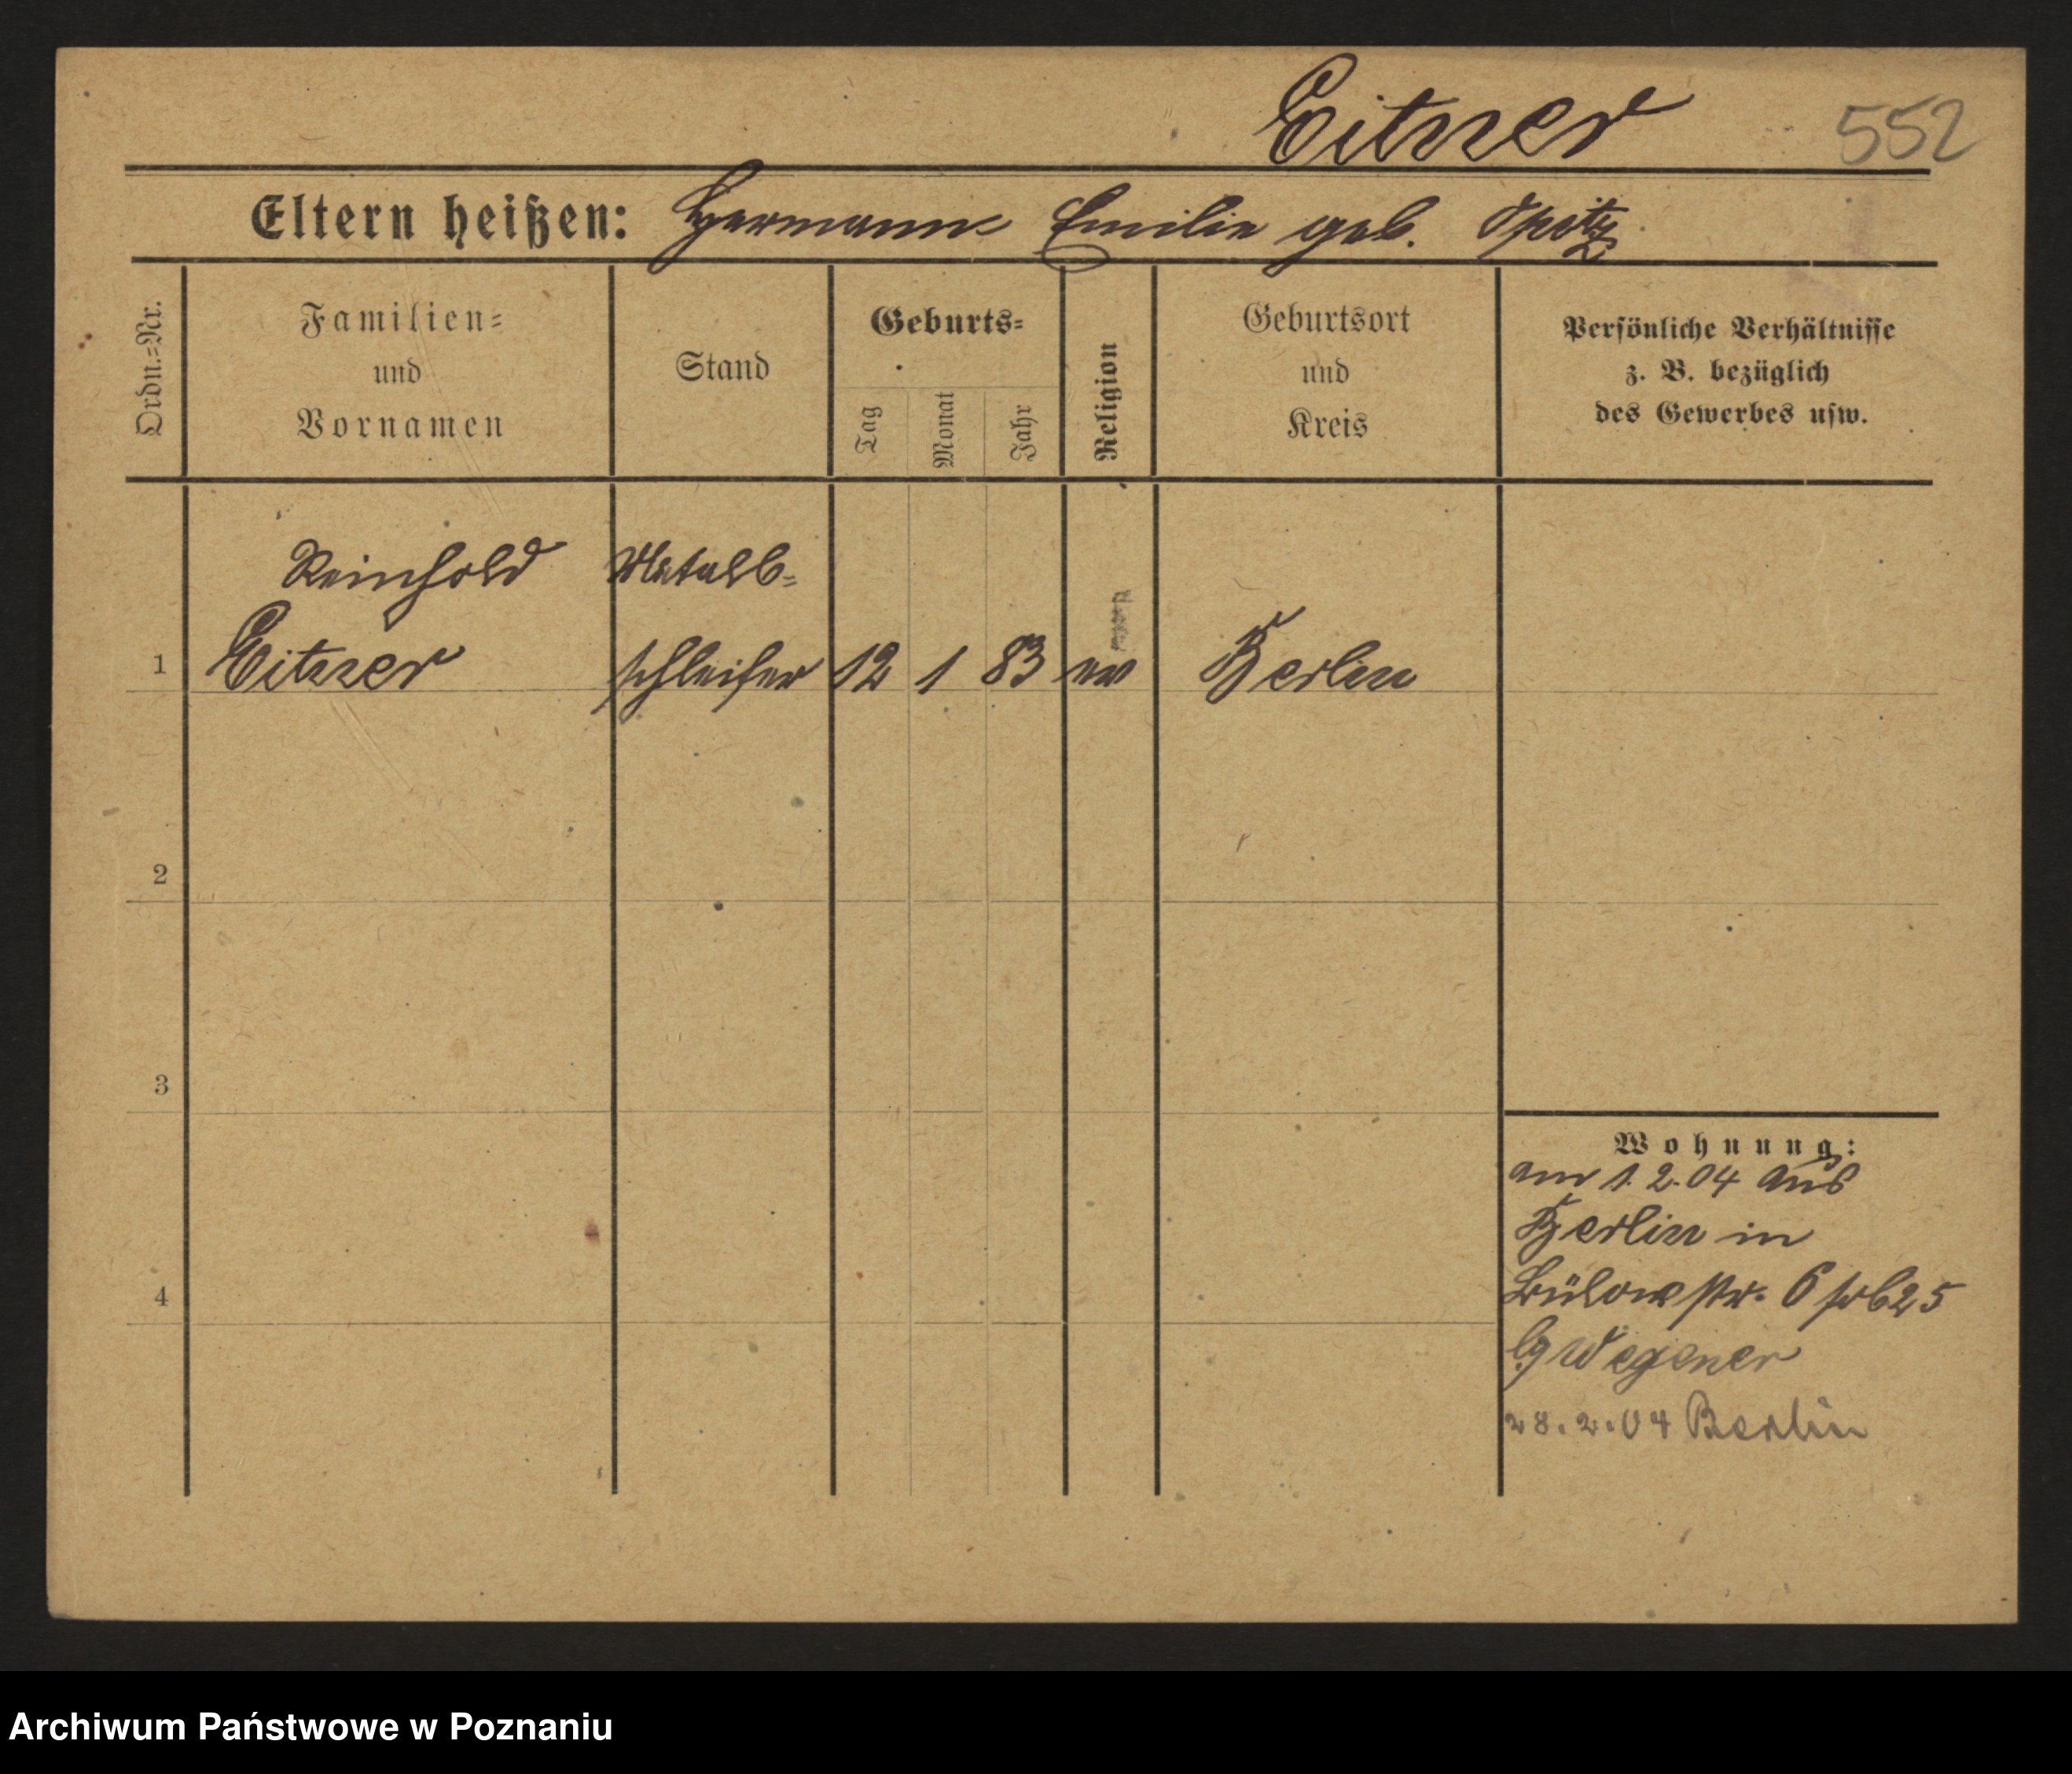 Eitner 552
Eltern heißen: Hermann Emilie geb. Opitz
Ordn.=Nr.
Familien=
und
Vornamen
Stand
Geburts=
Tag
Monat
Jahr
Religion
Geburtsort
und
Kreis
Persönliche Verhältnisse
z. B. bezüglich
des Gewerbes usw.
Reinhold Metall=
1 Eitner schleifer 12 1 83 ev Berlin
2
3
4
Wohnung:
am 1. 2. 04 aus
Berlin in
Bülowstr. 6
Wegener
28. 2. 04 Berlin
Archiwum Państwowe w Poznaniu